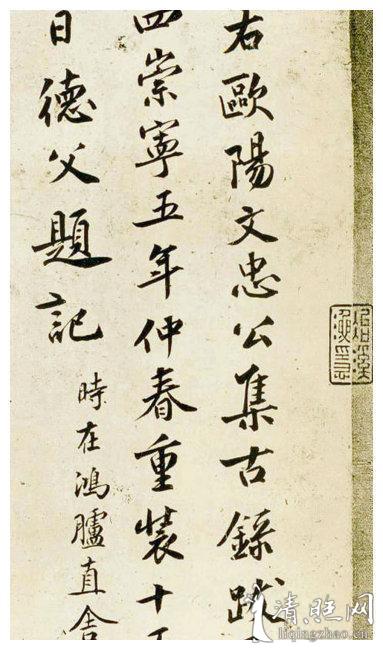 右歐陽文忠公集古錄跋
四崇寧五年仲春重装十
日德父題記
時在鴻臚直舍
清照网
liqingzhao.cn